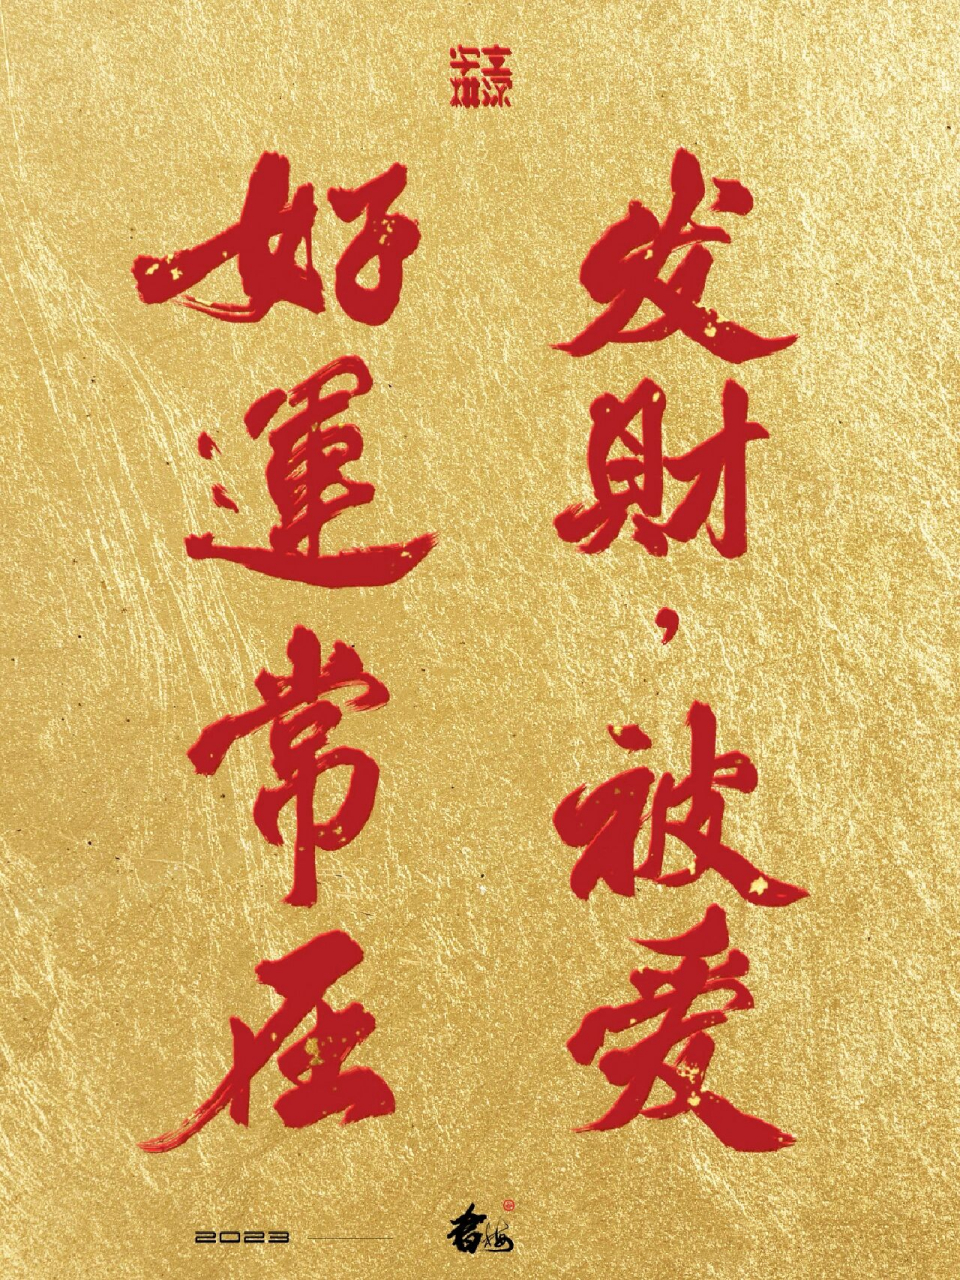 发財，被爱
好運常在
2023